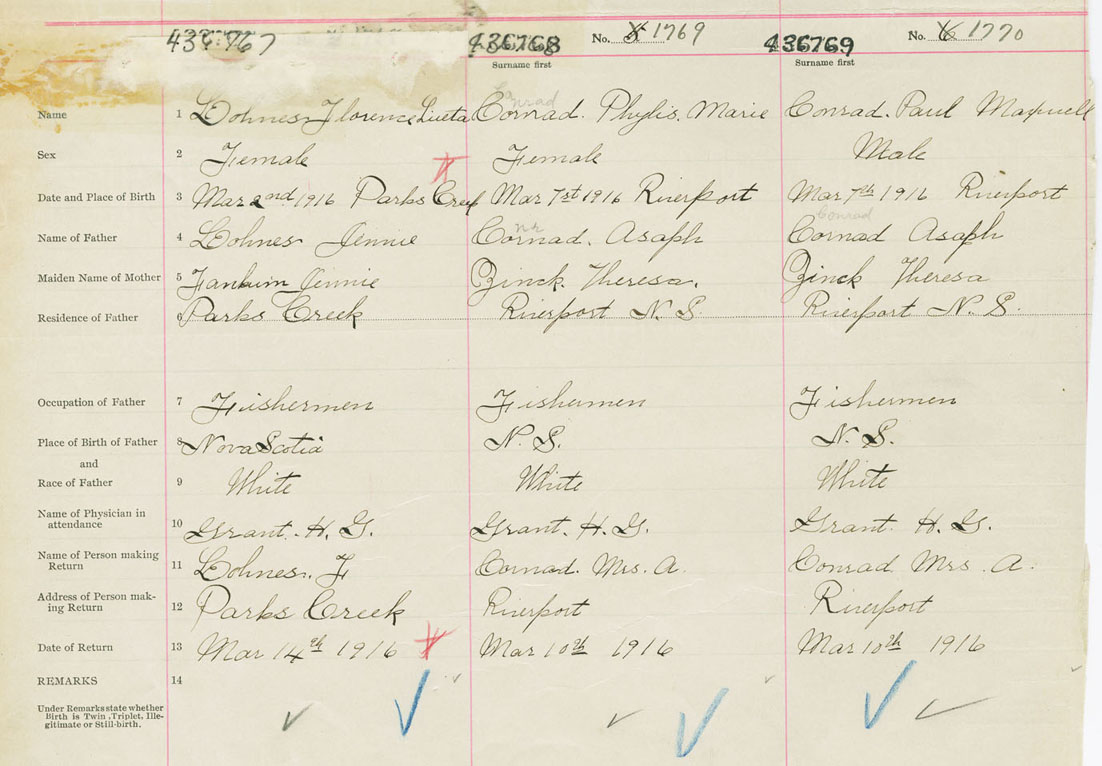 436767 436768 No. 5 1769 436769 No. 6 1770
Surname first Surname first
Name 1 Lohnes Florence Lueta Cornad. Phylis. Marie Conrad. Paul Maxwell
Sex 2 Female Female Male
Date and Place of Birth 3 Mar 2nd 1916 Parks Creek Mar 7st 1916 Riverport Mar 7th 1916 Riverport
nr Conrad
Name of Father 4 Lohnes Jennie Cornad. Asaph Cornad Asaph
Maiden Name of Mother 5 Jennie Zinck. Theresa. Zinck Theresa
Residence of Father 6 Parks Creek Riverport N. S. Riverport N. S.
Occupation of Father 7 Fishermen Fishermen Fishermen
Place of Birth of Father 8 Nova Scotia N. S. N. S.
and
Race of Father 9 White White White
Name of Physician in
attendance 10 Grant. H. G. Grant. H. G. Grant. H. G.
Name of Person making
Return 11 Lohnes. F Cornad. Mrs. A. Conrad Mrs. A.
Address of Person mak-
ing Return 12 Parks Creek Riverport Riverport
Date of Return 13 Mar 14th 1916 Mar 10th 1916 Mar 10th 1916
REMARKS 14
Under Remarks state whether
Birth is Twin, Triplet, Ille-
gitimate or Still-birth.